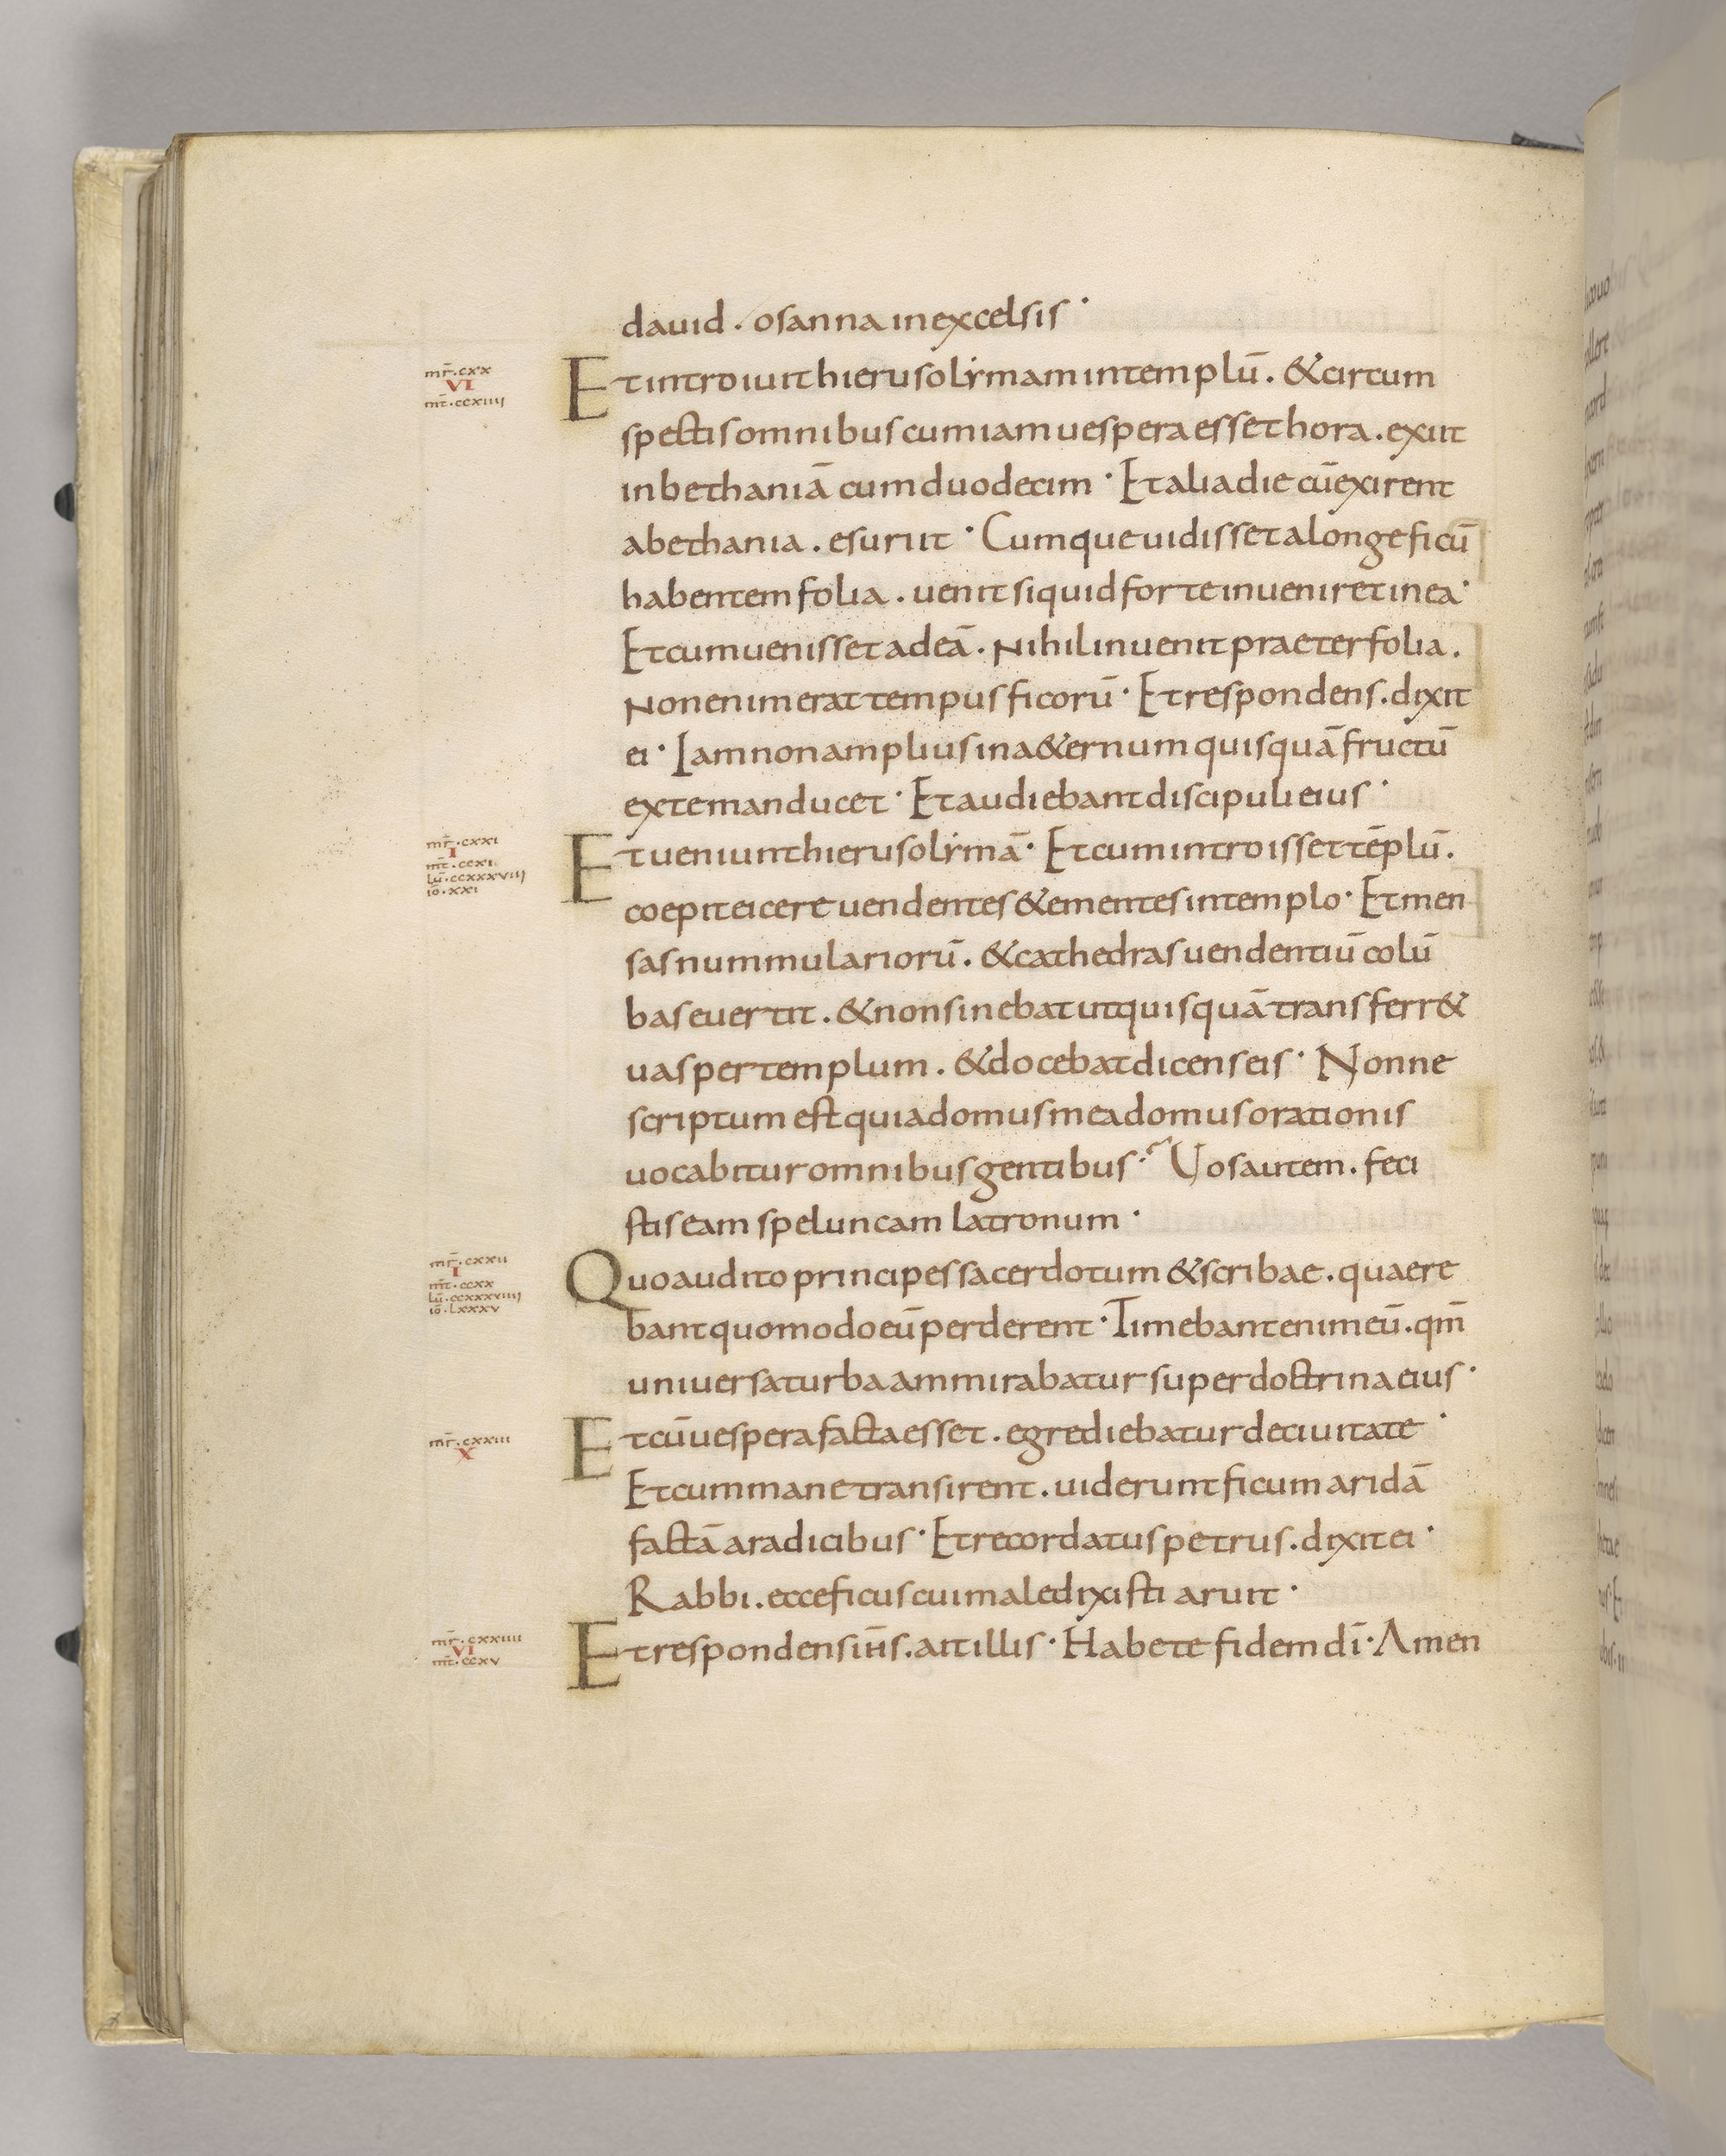 dauid . osanna in excelsis ·
mr̄ . cxx
VI
mt̄ . ccxiiii
Et introiuit hierusolymam in templū . & circum
spectis omnibus cum iam uespera esset hora . exiit
in bethaniā cum duodecim · Et alia die cū exirent
a bethania . esuriit · Cumque uidisset a longe ficū
habentem folia . uenit si quid forte inueniret in ea ·
Et cum uenisset ad eā . Nihil inuenit praeter folia .
Non enim erat tempus ficorū · Et respondens . dixit
ei · Iam non amplius in a&ernum quisquā fructū
ex te manducet · Et audiebant discipuli eius ·
mr̄ . cxxi
I
mt̄ . ccxi
lū . ccxxxviii
iō . xxi
Et ueniunt hierusolymā · Et cum introisset tēplū .
coepit eicere uendentes & ementes in templo · Et men
sas nummulariorū . & cathedras uendentiū colū
bas euertit . & non sinebat ut quisquā transferr&
uas per templum . & docebat dicens eis · Nonne
scriptum est quia domus mea domus orationis
uocabitur omnibus gentibus · Uos autem . feci
stis eam speluncam latronum ·
mr̄ . cxxii
I
mt̄ . ccxx
lū . ccxxxviiii
iō . lxxxv
Quo audito principes sacerdotum & scribae . quaere
bant quomodo eū perderent · Timebant enim eū . qm̄
uniuersa turba ammirabatur super doctrina eius ·
mr̄ . cxxiii
X
Et cū uespera facta esset . egrediebatur de ciuitate ·
Et cum mane transirent . uiderunt ficum aridā
factā a radicibus · Et recordatus petrus . dixit ei ·
Rabbi . ecce ficus cui maledixisti aruit ·
mr̄ . cxxiiii
VI
mt̄ . ccxv
Et respondens ih̄s . ait illis · Habete fidem dī · Amen